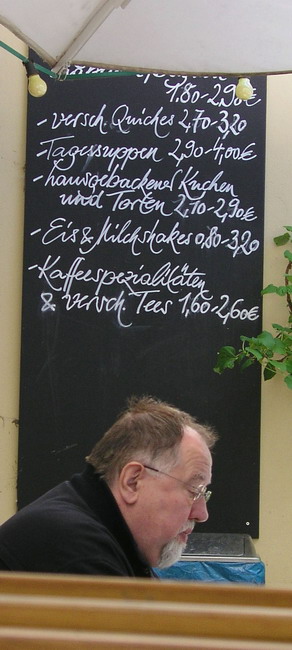 1,80-2,90€
- versch. Quiches 2,70-3,20
- Tagessuppen 2,90-4,00€
- hausgebackener Kuchen
und Torten 2,70-2,90€
- Eis & Milchshakes 0,80-3,20
- Kaffeespezialitäten
& versch. Tees 1,60-2,60€